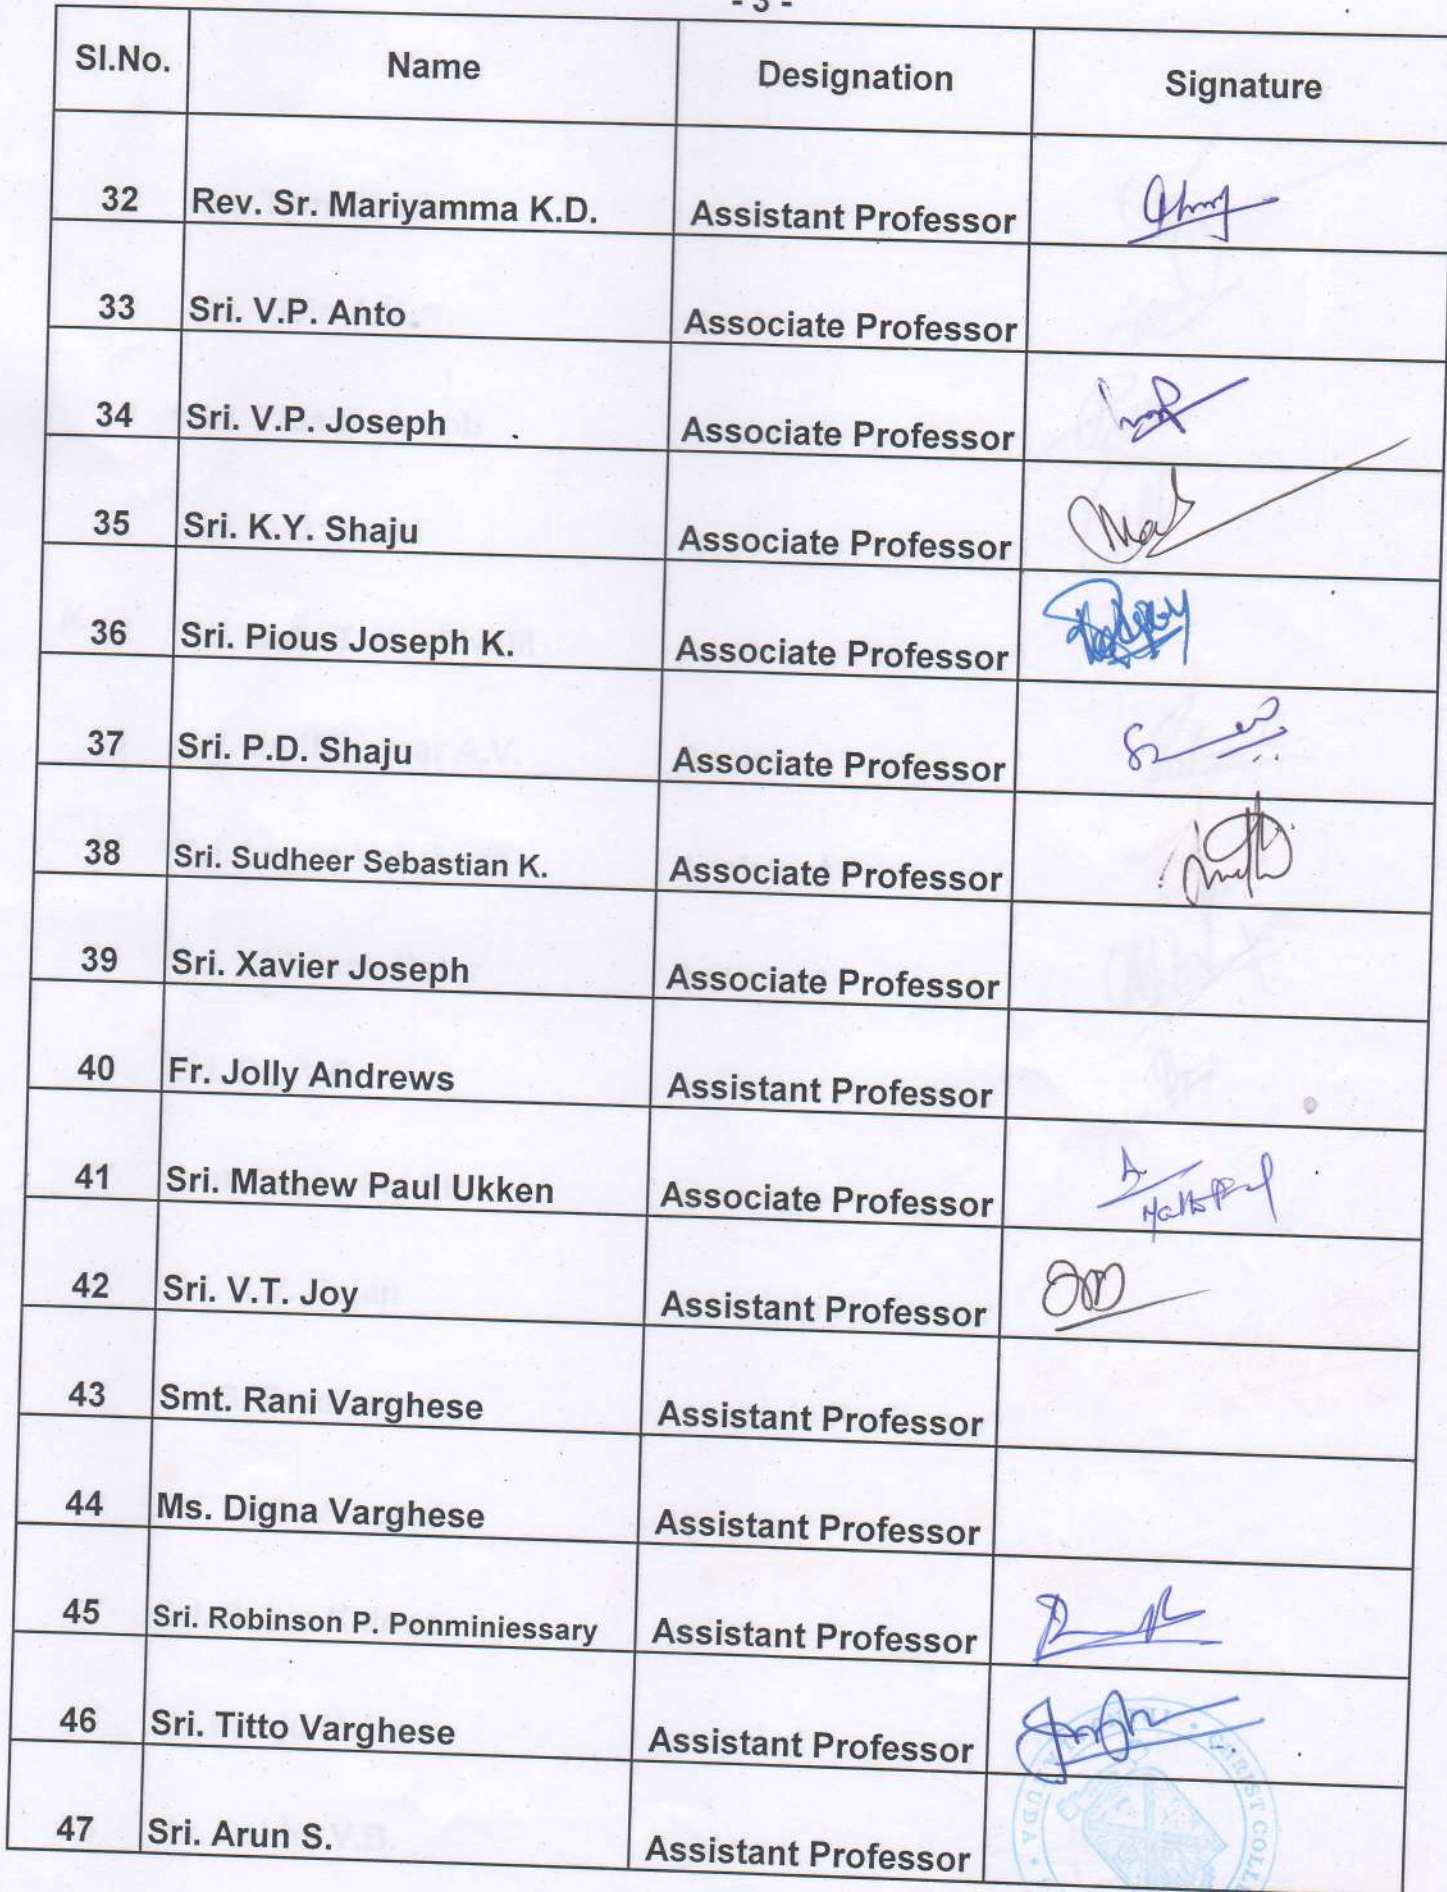 - 3 -
Sl.No. Name Designation Signature
32 Rev. Sr. Mariyamma K.D. Assistant Professor
33 Sri. V.P. Anto Associate Professor
34 Sri. V.P. Joseph Associate Professor
35 Sri. K.Y. Shaju Associate Professor
36 Sri. Pious Joseph K. Associate Professor
37 Sri. P.D. Shaju Associate Professor
38 Sri. Sudheer Sebastian K. Associate Professor
39 Sri. Xavier Joseph Associate Professor
40 Fr. Jolly Andrews Assistant Professor
41 Sri. Mathew Paul Ukken Associate Professor
42 Sri. V.T. Joy Assistant Professor
43 Smt. Rani Varghese Assistant Professor
44 Ms. Digna Varghese Assistant Professor
45 Sri. Robinson P. Ponminiessary Assistant Professor
46 Sri. Titto Varghese Assistant Professor
47 Sri. Arun S. Assistant Professor